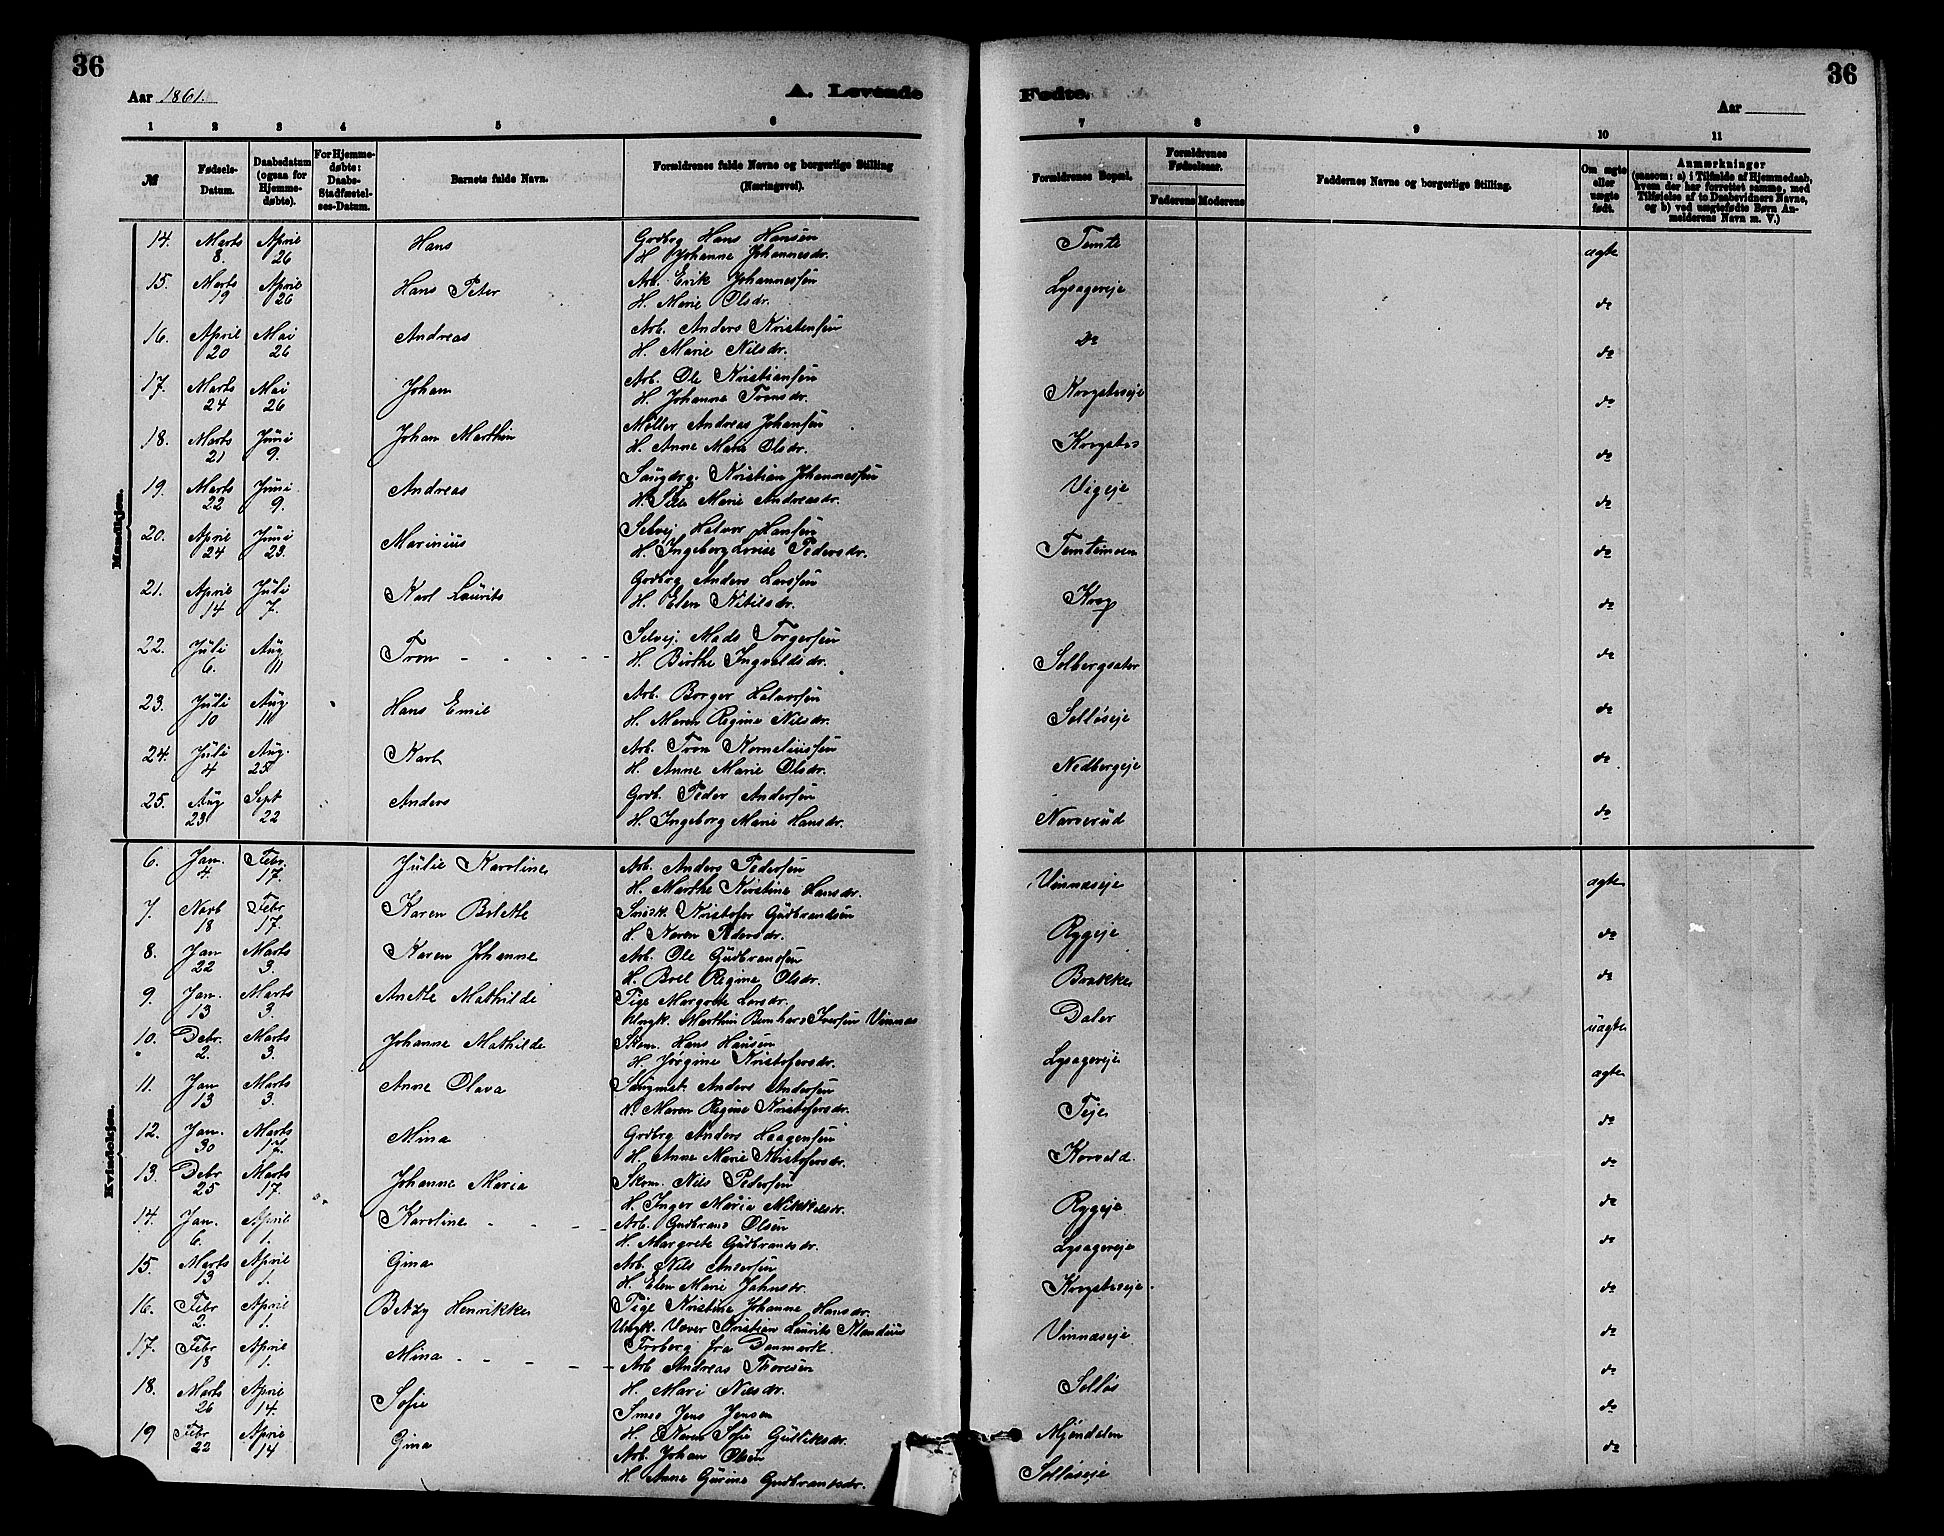 36
36
Aar 1861.
A. Levende
Fødte.
Aar
1 2 3 4 5 6 7 8 9 10 11
№
Fødsels-Datum.
Daabsdatum (ogsaa for Hjemmedøbte).
For Hjemmedøbte: Daabs-Stadfæstelses-Datum.
Barnets fulde Navn.
Forældrenes fulde Navne og borgerlige Stilling (Næringsvei).
Forældrenes Bopæl.
Forældrenes Fødselsaar.
Faderens
Moderens
Faddernes Navne og borgerlige Stilling.
Om ægte eller uægte født.
Anmærkninger (saasom: a) i Tilfælde af Hjemmedaab, hvem der har forrettet samme, med Tilføielse af to Daabsvidners Navne, og b) ved uægtefødte Børn Anmelderens Navn m. V.)
Mandkjøn.
14. Marts 8. April 26 Hans Grdbrg Hans Hansen Temte ægte
H. Johanne Johannesdr.
15. Marts 19 April 26 Hans Peter Arb. Erik Johannessen Lysagereje do
H. Marie Olsdr.
16. April 20 Mai 26 Andreas Arb. Anders Kristensen Do do
H. Marie Nilsdr.
17. Marts 24 Mai 26 Johan Arb. Ole Kristiansen Krogstadeje do
H. Johanne Tronsdr.
18. Marts 21 Juni 9. Johan Marthin Møller Andreas Johansen Krogstad do
H. Anne Marie Olsdr.
19. Marts 22 Juni 9. Andreas Kristian Johannessen Vigeje do
Marie Andreasdr.
20. April 24 Juni 23. Marinius Selvej Halvor Hansen Temtemoen do
H. Ingeborg Lovise Pedersdr.
21. April 14 Juli 7. Karl Laurits Grdbrg Anders Larssen Krog do
H. Elen
22. Juli 6. Aug 11 Tron Selvej. Mads Torgersen Solbergsæter do
H. Birthe Ingvoldsdr.
23. Juli 10 Aug 11 Hans Emil Arb. Borger Halvorsen Solløseje do
H. Maren Regine Nilsdr.
24. Juli 4 Aug. 25 Karl Arb. Tron Korneliussen Nedbergeje do
H. Anne Marie Olsdr.
25. Aug 23 Sept 22 Anders Grdb. Peder Andersen Narverud do
H. Ingeborg Marie Hansdr.
Kvindekjøn.
6. Jan. 4. Febr. 17. Julie Karoline Arb. Anders Pedersen Vinnæseje ægte
H. Marthe Kirstine Hansdr.
7. Novb 18 Febr 17. Karen Bolette Snedk. Kristofer Gudbrandsen Ryggeje do
H. Karen Pedersdr.
8. Jan 22 Marts 3. Karen Johanne Arb. Ole Gudbransen Brække do
H. Boel Regine Olsdr.
9. Jan. 13 Marts 3. Anette Mathilde Pige Margrete Larsdr. Daler uægte
Ungk. Marthin Bernhard Iversen Vinnæs
10. Debr. 2. Marts 3. Johanne Mathilde Skom. Hans Hansen Lysagereje ægte
H. Jørgine Kristofersdr.
11. Jan 13 Marts 3. Anne Olava Saugmst. Anders Andersen Teje do
H. Maren Regine Kristofersdr.
12. Jan. 30 Marts 17. Mina Grdbrg Anders Haagensen Korvald do
H. Anne Marie Kristofersdr.
13. Debr 25 Marts 17. Johanne Maria Skom. Nils Pedersen Ryggeje do
H. Inger Maria Mikkelsdr.
14. Jan. 6. April 1. Karoline Arb. Gudbrand Olsen Lysagereje do
H. Margrete Gudbrandsdr.
15. Marts 13 April 1. Gina Arb. Nils Andersen Krogstadeje do
H. Elen Marie Jahnsdr.
16. Febr 2. April 1. Betzy Henrikke Pige Kristine Johanne Hansdr. Vinnæseje do
Ungk. Væver Kristian Laurits Klaudius
Froberg fra Danmark
17. Febr 18 April 1. Mina Arb Andreas Thoresen Solløs do
H. Mari Nilsdr.
18. Marts 26 April 14. Sofie Smed Jens Jensen Mjøndalen do
H. Karen Sofie Gulliksdr.
19 Febr 22 April 14 Gina Arb. Johan Olsen Solløseje do
H. Anne Gurine Gudbrandsdr.